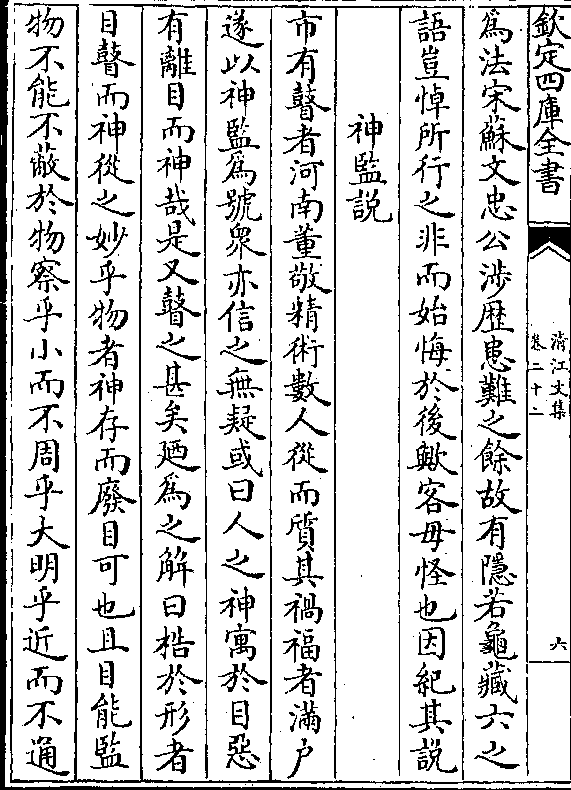 欽定四庫全書
清江文集
卷二十二
六
爲法宋蘇文忠公涉歴患難之餘故有隱若龜藏六之
語豈悼所行之非而始悔於後歟客毋怪也因紀其説
神監説
市有瞽者河南董敬精術數人從而質其禍福者滿户
遂以神監爲號衆亦信之無疑或曰人之神寓於目惡
有離目而神哉是又瞽之甚矣廼爲之解曰梏於形者
目瞽而神從之妙乎物者神存而廢目可也且目能監
物不能不蔽於物察乎小而不周乎大明乎近而不通